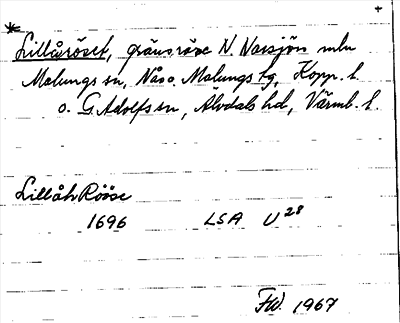 * Lillåröset, gränsröse N. Noesjön mln
Malungs sn, Nås o. Malungs tg, Kopp. l.
o. G. Adolfs sn, Älvdals hd, Värml. l.
Lillåh Rööse
1696 LSA U 28
FW. 1967